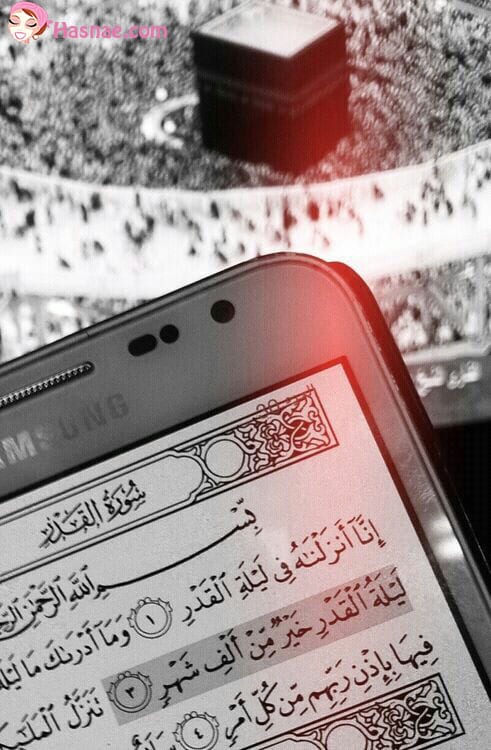 Hasnae.com
SAMSUNG
سُورَةُ القَدْرِ
بِسْمِ اللَّهِ الرَّحْمَٰنِ
إِنَّا أَنزَلْنَاهُ فِي لَيْلَةِ الْقَدْرِ ١ وَمَا أَدْرَاكَ مَا
لَيْلَةُ الْقَدْرِ خَيْرٌ مِّنْ أَلْفِ شَهْرٍ ٣ تَنَزَّلُ
فِيهَا بِإِذْنِ رَبِّهِم مِّن كُلِّ أَمْرٍ ٤